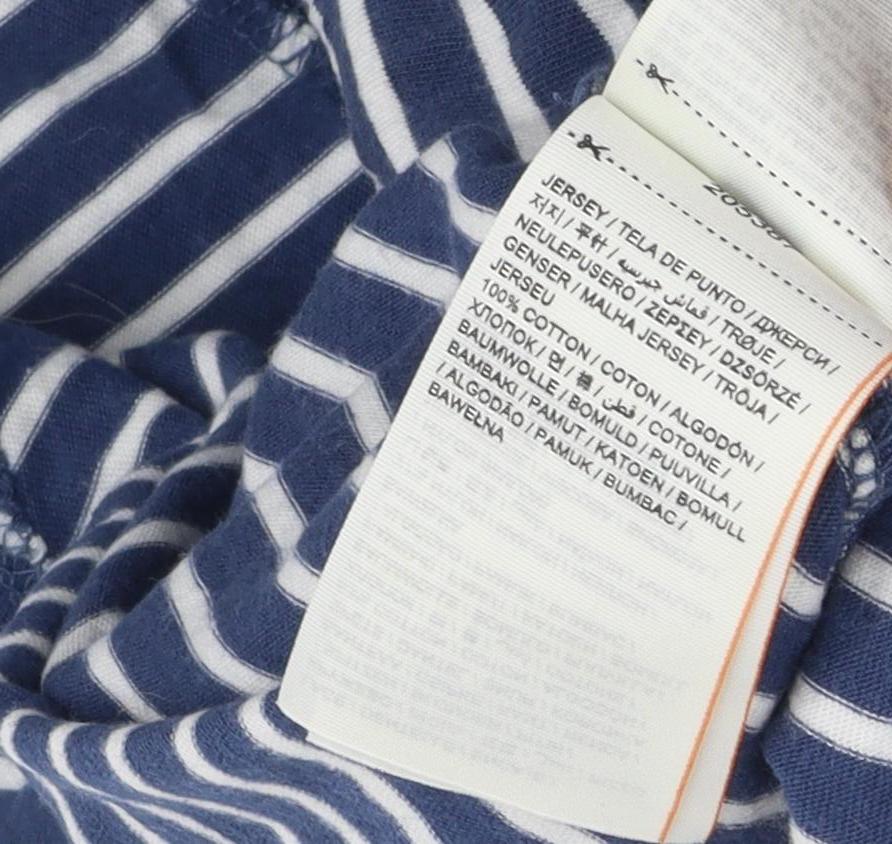 JERSEY / TELA DE PUNTO / ДЖЕРСИ /
저지 / 平针 / قماش جيرسيه / TRØJE /
NEULEPUSERO / ΖΕΡΣΕΥ / DZSÖRZÉ /
GENSER / MALHA JERSEY / TRÖJA /
JERSEU
100% COTTON / COTON / ALGODÓN /
ХЛОПОК / 면 / 棉 / قطن / COTONE /
BAUMWOLLE / BOMULD / PUUVILLA /
BAMBAKI / PAMUT / KATOEN / BOMULL
/ ALGODÃO / PAMUK / BUMBAC /
BAWEŁNA